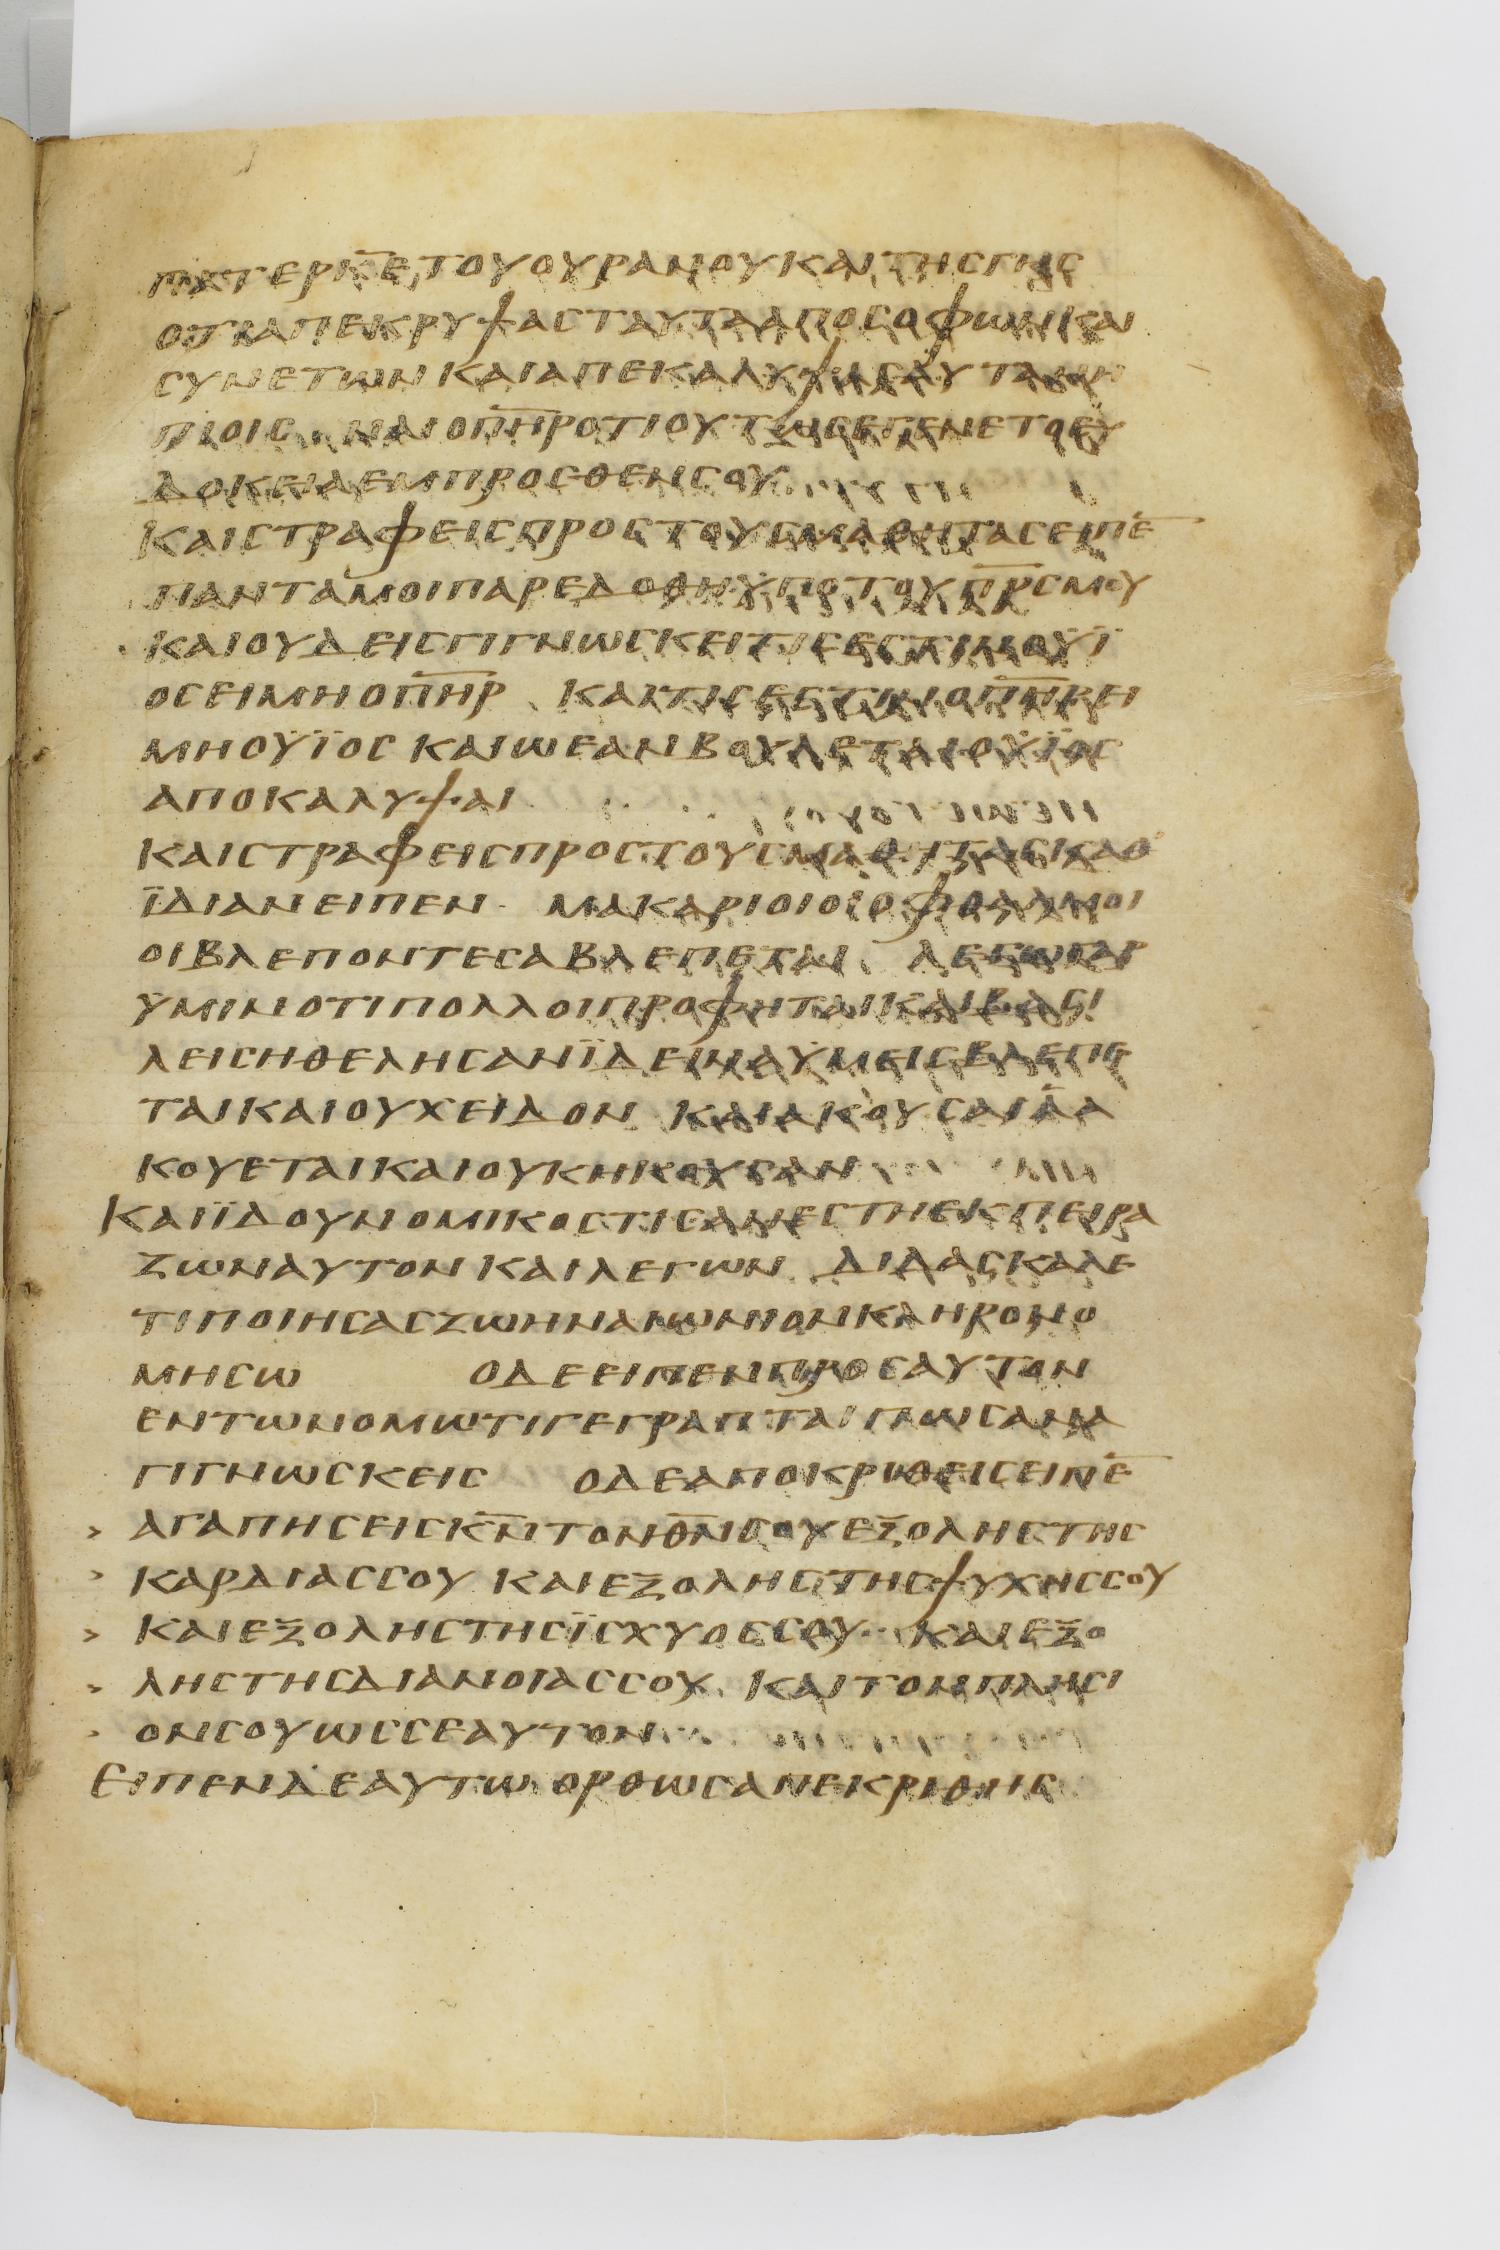 ΠΑΤΕΡΚ̅Ε̅ΤΟΥΟΥΡΑΝΟΥΚΑΙΤΗΣΓΗΣ
ΟΤΙΑΠΕΚΡΥΨΑΣΤΑΥΤΑΑΠΟΣΟΦΩΝΚΑΙ
ΣΥΝΕΤΩΝΚΑΙΑΠΕΚΑΛΥΨΑΣΑΥΤΑΝΗ
ΠΙΟΙΣ ΝΑΙΟΠ̅Η̅Ρ̅ΟΤΙΟΥΤΩΣΕΓΕΝΕΤΟΕΥ
ΔΟΚΕΙΑΕΜΠΡΟΣΘΕΝΣΟΥ
ΚΑΙΣΤΡΑΦΕΙΣΠΡΟΣΤΟΥΣΜΑΘΗΤΑΣΕΙΠΕ̅
ΠΑΝΤΑΜΟΙΠΑΡΕΔΟΘΗΫΠΟΤΟΥΠ̅Ρ̅Σ̅ΜΟΥ
ΚΑΙΟΥΔΕΙΣΓΙΓΝΩΣΚΕΙΤΙΣΕΣΤΙΝΟΫΪ
ΟΣΕΙΜΗΟΠ̅Η̅Ρ̅ ΚΑΙΤΙΣΕΣΤΙΝΟΠ̅Η̅Ρ̅ΕΙ
ΜΗΟΫΪΟΣ ΚΑΙΩΕΑΝΒΟΥΛΕΤΑΙΟΫΪΟΣ
ΑΠΟΚΑΛΥΨΑΙ
ΚΑΙΣΤΡΑΦΕΙΣΠΡΟΣΤΟΥΣΜΑΘΗΤΑΣΚΑΤ
ΪΔΙΑΝΕΙΠΕΝ ΜΑΚΑΡΙΟΙΟΙΟΦΘΑΛΜΟΙ
ΟΙΒΛΕΠΟΝΤΕΣΑΒΛΕΠΕΤΑΙ ΛΕΓΩΓΑΡ
ΫΜΙΝΟΤΙΠΟΛΛΟΙΠΡΟΦΗΤΑΙΚΑΙΒΑΣΙ
ΛΕΙΣΗΘΕΛΗΣΑΝΪΔΕΙΝΑΫΜΕΙΣΒΛΕΠΕ
ΤΑΙΚΑΙΟΥΧΕΙΔΟΝ ΚΑΙΑΚΟΥΣΑΙΑΑ
ΚΟΥΕΤΑΙΚΑΙΟΥΚΗΚΟΥΣΑΝ
ΚΑΙΪΔΟΥΝΟΜΙΚΟΣΤΙΣΑΝΕΣΤΗΕΚΠΕΙΡΑ
ΖΩΝΑΥΤΟΝΚΑΙΛΕΓΩΝ ΔΙΔΑΣΚΑΛΕ
ΤΙΠΟΙΗΣΑΣΖΩΗΝΑΙΩΝΙΟΝΚΛΗΡΟΝΟ
ΜΗΣΩ ΟΔΕΕΙΠΕΝΠΡΟΣΑΥΤΟΝ
ΕΝΤΩΝΟΜΩΤΙΓΕΓΡΑΠΤΑΙΠΩΣΑΝΑ
ΓΙΓΝΩΣΚΕΙΣ ΟΔΕΑΠΟΚΡΙΘΕΙΣΕΙΠΕ̅
> ΑΓΑΠΗΣΕΙΣΚ̅Ν̅ΤΟΝΘ̅Ν̅ΣΟΥΕΞΟΛΗΣΤΗΣ
> ΚΑΡΔΙΑΣΣΟΥ ΚΑΙΕΞΟΛΗΣΤΗΣΨΥΧΗΣΣΟΥ
> ΚΑΙΕΞΟΛΗΣΤΗΣΪΣΧΥΟΣΣΟΥ ΚΑΙΕΞΟ
> ΛΗΣΤΗΣΔΙΑΝΟΙΑΣΣΟΥ ΚΑΙΤΟΝΠΛΗΣΙ
> ΟΝΣΟΥΩΣΣΕΑΥΤΟΝ
ΕΙΠΕΝΔΕΑΥΤΩ ΟΡΘΩΣΑΠΕΚΡΙΘΗΣ